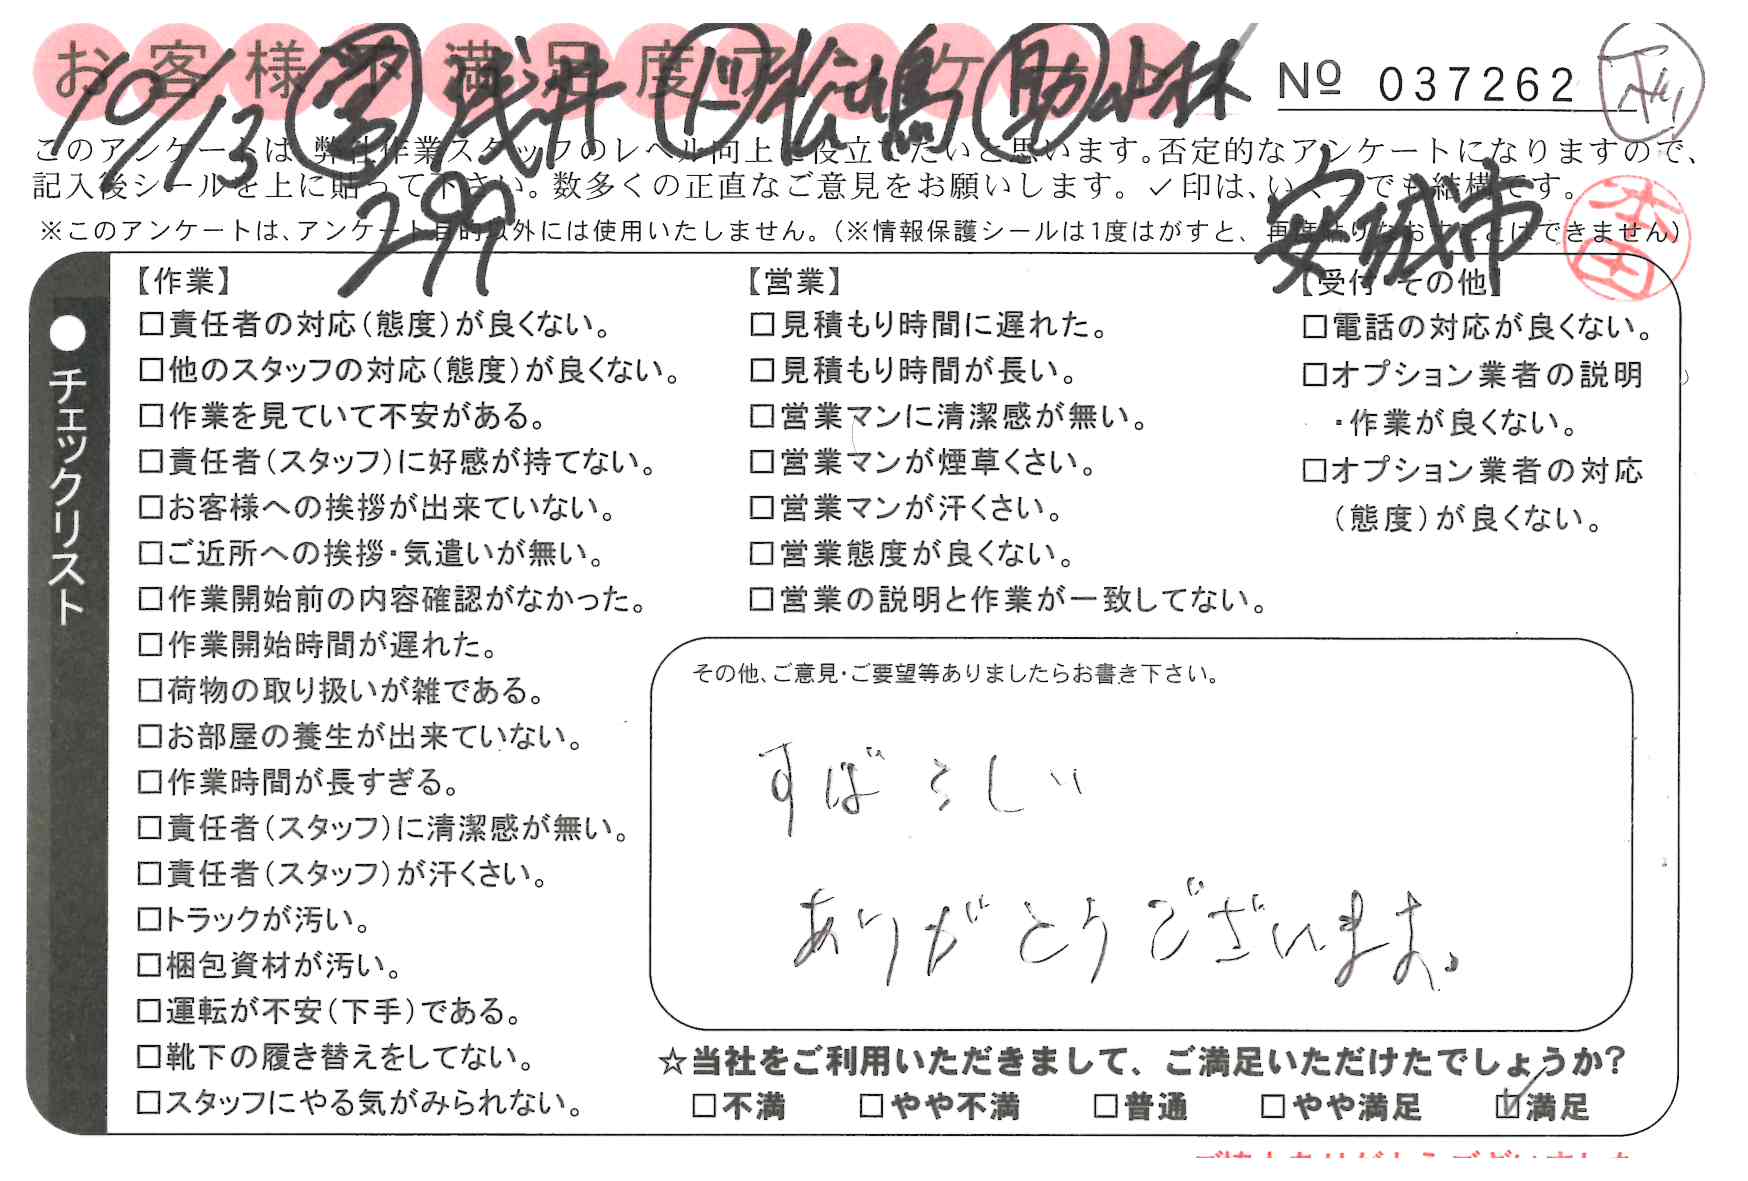 お客様不満足度アンケート
10/13 営 浅井 ド 松嶋 助 小林
Nº 037262
このアンケートは、弊社作業スタッフのレベル向上に役立てたいと思います。否定的なアンケートになりますので、
記入後シールを上に貼って下さい。数多くの正直なご意見をお願いします。✓印は、いくつでも結構です。
299 安城市
本田
※このアンケートは、アンケート目的以外には使用いたしません。(※情報保護シールは1度はがすと、再度貼りなおすことはできません)
●チェックリスト
【作業】
□責任者の対応(態度)が良くない。
□他のスタッフの対応(態度)が良くない。
□作業を見ていて不安がある。
□責任者(スタッフ)に好感が持てない。
□お客様への挨拶が出来ていない。
□ご近所への挨拶・気遣いが無い。
□作業開始前の内容確認がなかった。
□作業開始時間が遅れた。
□荷物の取り扱いが雑である。
□お部屋の養生が出来ていない。
□作業時間が長すぎる。
□責任者(スタッフ)に清潔感が無い。
□責任者(スタッフ)が汗くさい。
□トラックが汚い。
□梱包資材が汚い。
□運転が不安(下手)である。
□靴下の履き替えをしてない。
□スタッフにやる気がみられない。
【営業】
□見積もり時間に遅れた。
□見積もり時間が長い。
□営業マンに清潔感が無い。
□営業マンが煙草くさい。
□営業マンが汗くさい。
□営業態度が良くない。
□営業の説明と作業が一致してない。
【受付・その他】
□電話の対応が良くない。
□オプション業者の説明
・作業が良くない。
□オプション業者の対応
(態度)が良くない。
その他、ご意見・ご要望等ありましたらお書き下さい。
すばらしい
ありがとうございます。
☆当社をご利用いただきまして、ご満足いただけたでしょうか?
□不満 □やや不満 □普通 □やや満足 ☑満足